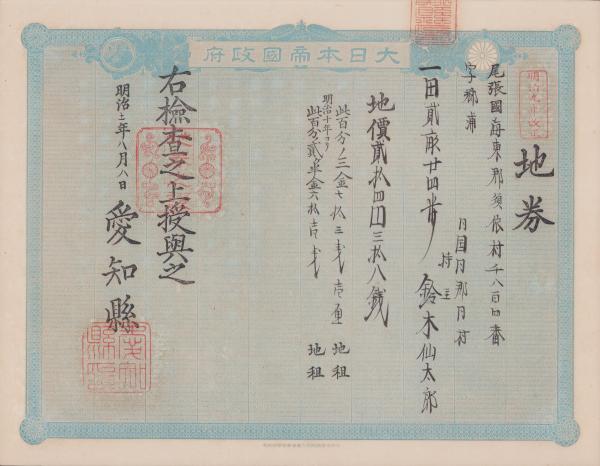 大日本帝國政府
明治九年改正
地券
尾張國海東郡須依村千八百四番
字郷浦
同國同郡同村
一田貳畝廿四歩
持主 鈴木仙太郎
地價貳拾四円三拾八銭
此百分ノ三金七拾三銭壱厘 地租
明治十年ヨリ
此百分ノ貳半金六拾壱銭 地租
右檢査之上授與之
明治十二年八月八日
愛知縣